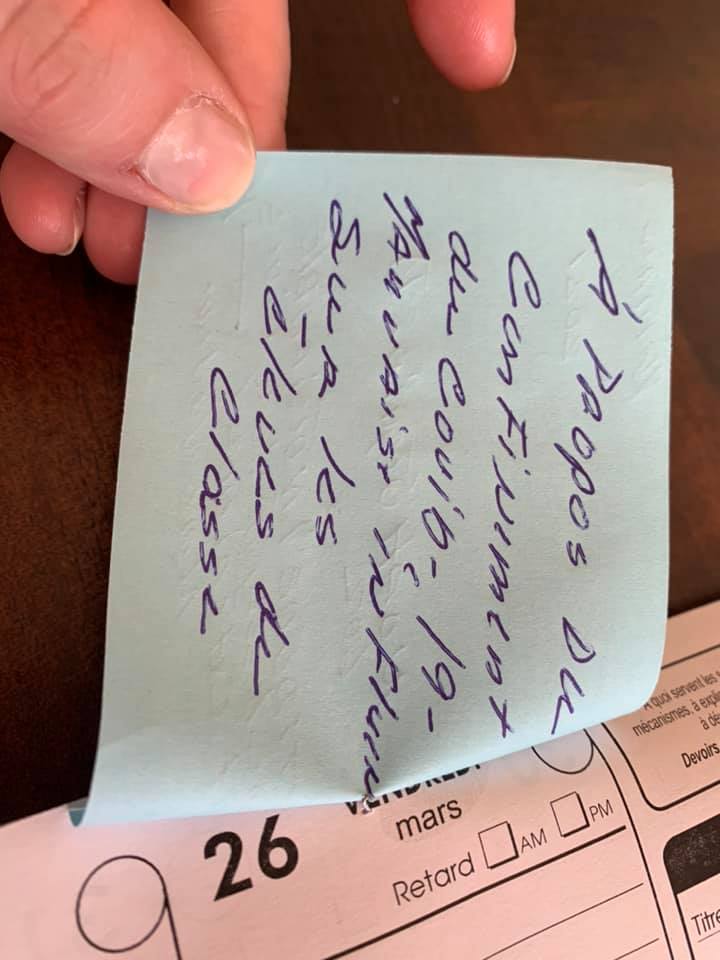 À Propos Du
Confinement
du Covid-19-
Mauvaise influen
Sur les
élèves de
Classe
26 VENDREDI
mars
Retard AM PM
À quoi servent les
mécanismes, à
à
Devoirs
Titre